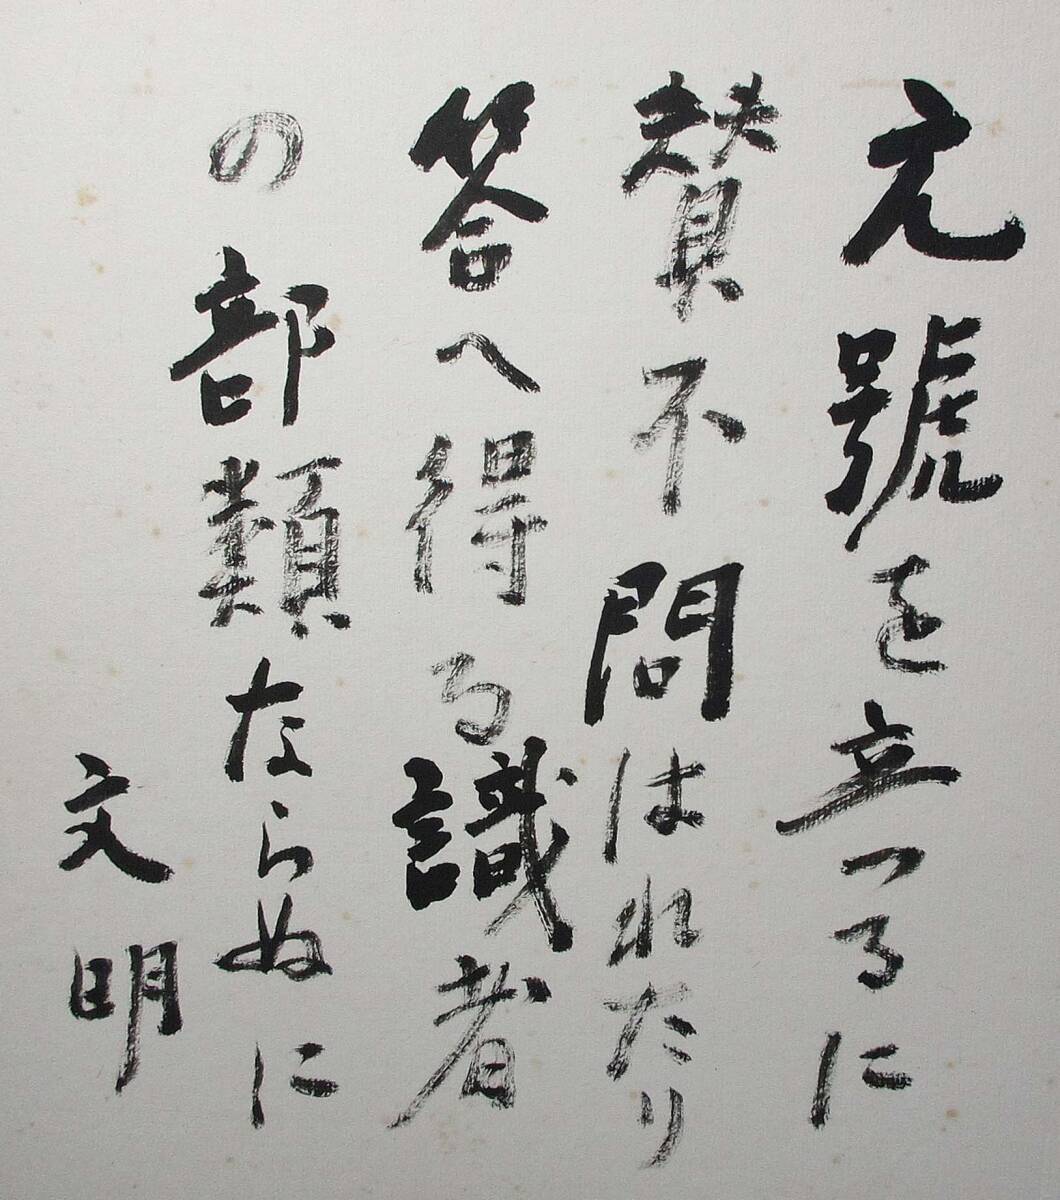 元號を立つるに
賛不問はれたり
答へ得る識者
の部類ならぬに
文明